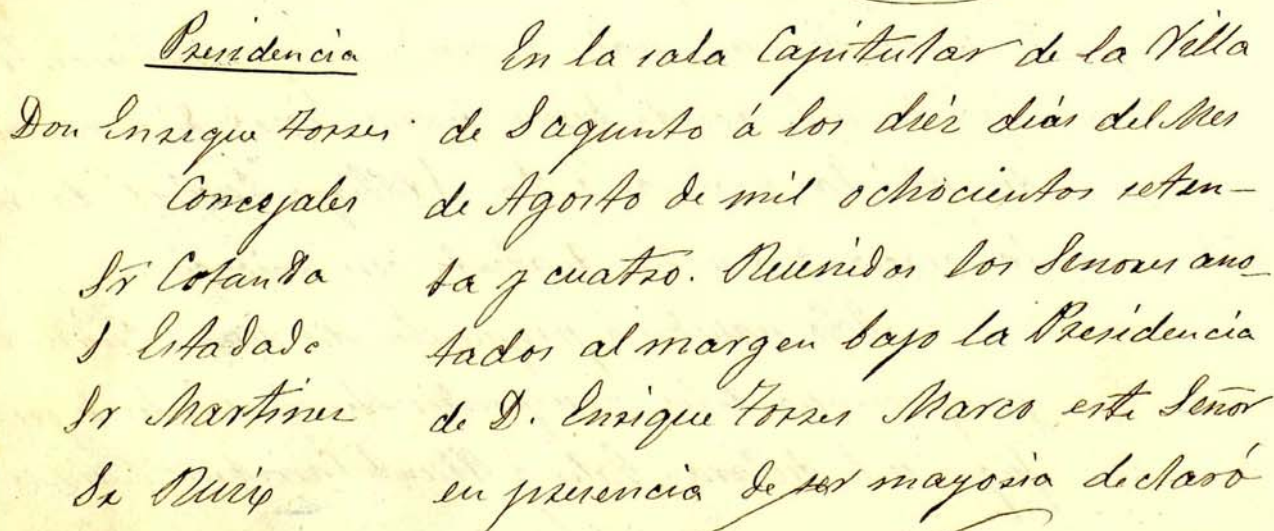 Presidencia
Don Enrique Torres
Concejales
Sr Cotanda
S Estadade
Sr Martinez
Sr Ruiz
En la sala Capitular de la Villa
de Sagunto á los diéz dias del Mes
de Agosto de mil ochocientos seten-
ta y cuatro. Reunidos los Señores ano-
tados al margen bajo la Presidencia
de D. Enrique Torres Marco este Señor
en presencia de ser mayoria declaró